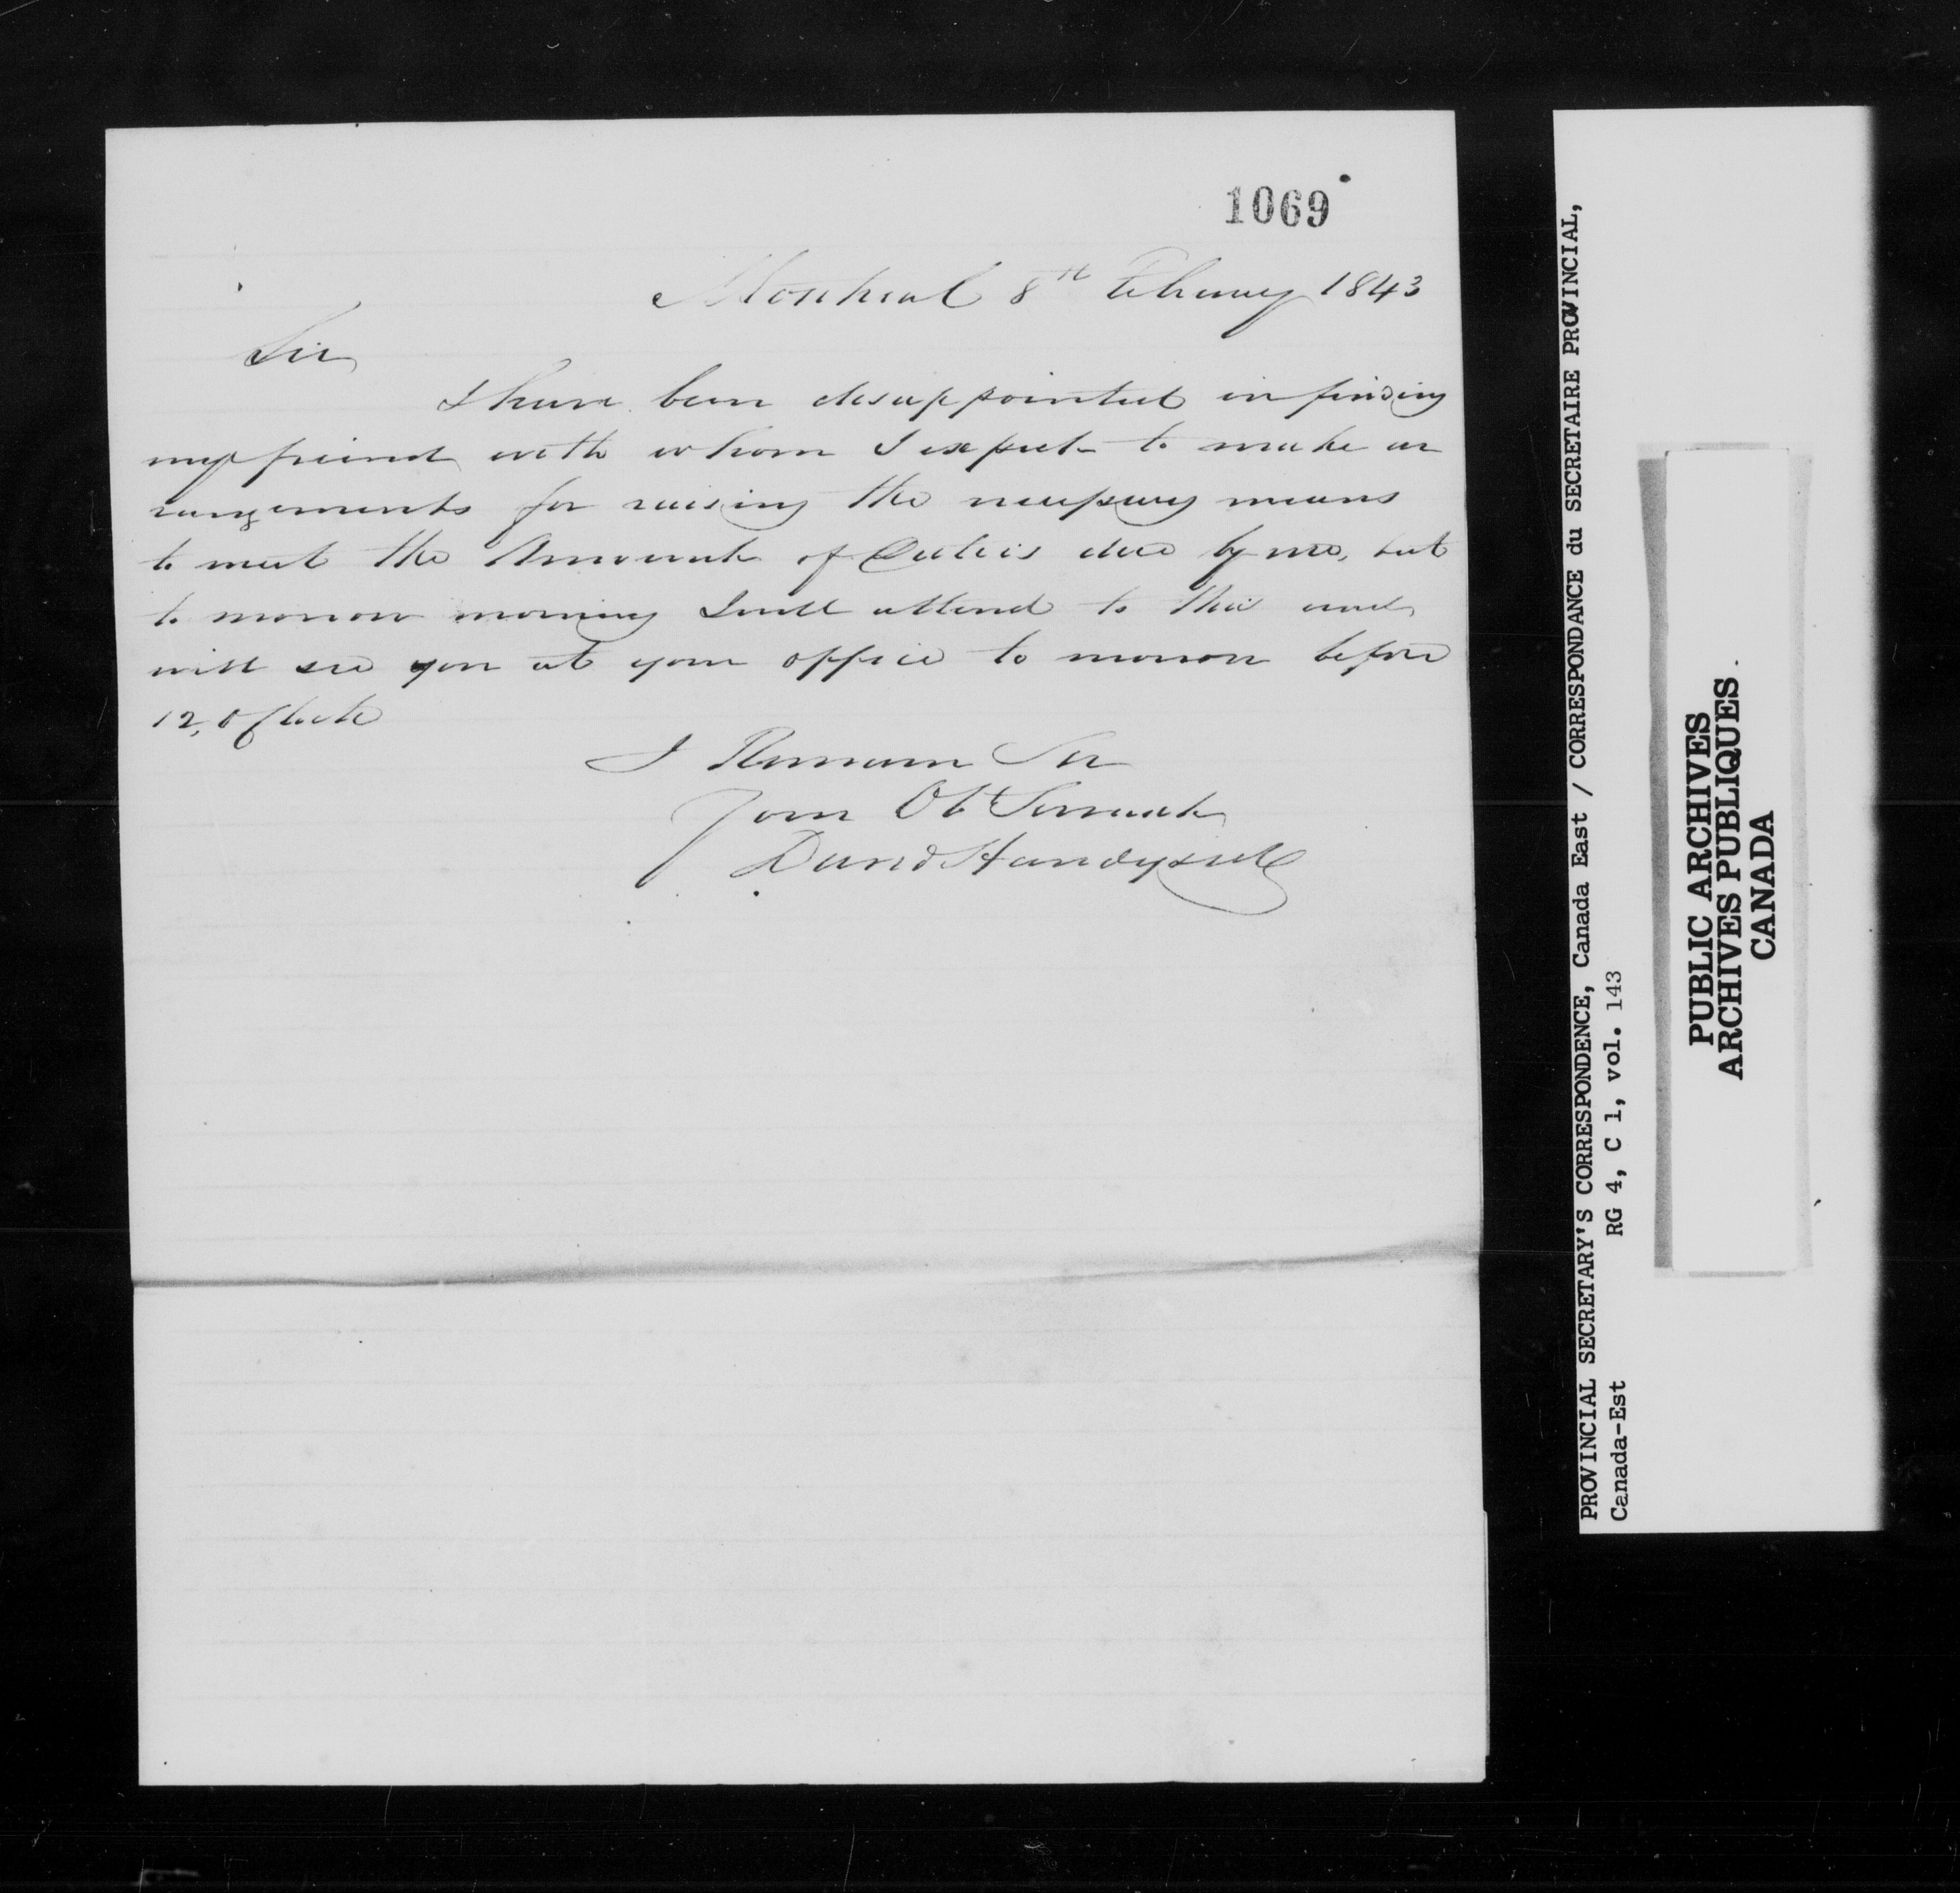 1069
Montreal 8th February 1843
Sir
I have been disappointed in finding
my friend with whom I expect to make ar
rangements for raising the necessary means
to meet the Amount of Duties due by me, but
to morrow morning I will attend to this and
will see you at your office to morrow before
12, oClock
I Remain Sir
Your Ob Servant
David Handyside
PROVINCIAL SECRETARY'S CORRESPONDENCE, Canada East / CORRESPONDANCE du SECRETAIRE PROVINCIAL,
Canada-Est RG 4, C 1, vol. 143
PUBLIC ARCHIVES
ARCHIVES PUBLIQUES
CANADA